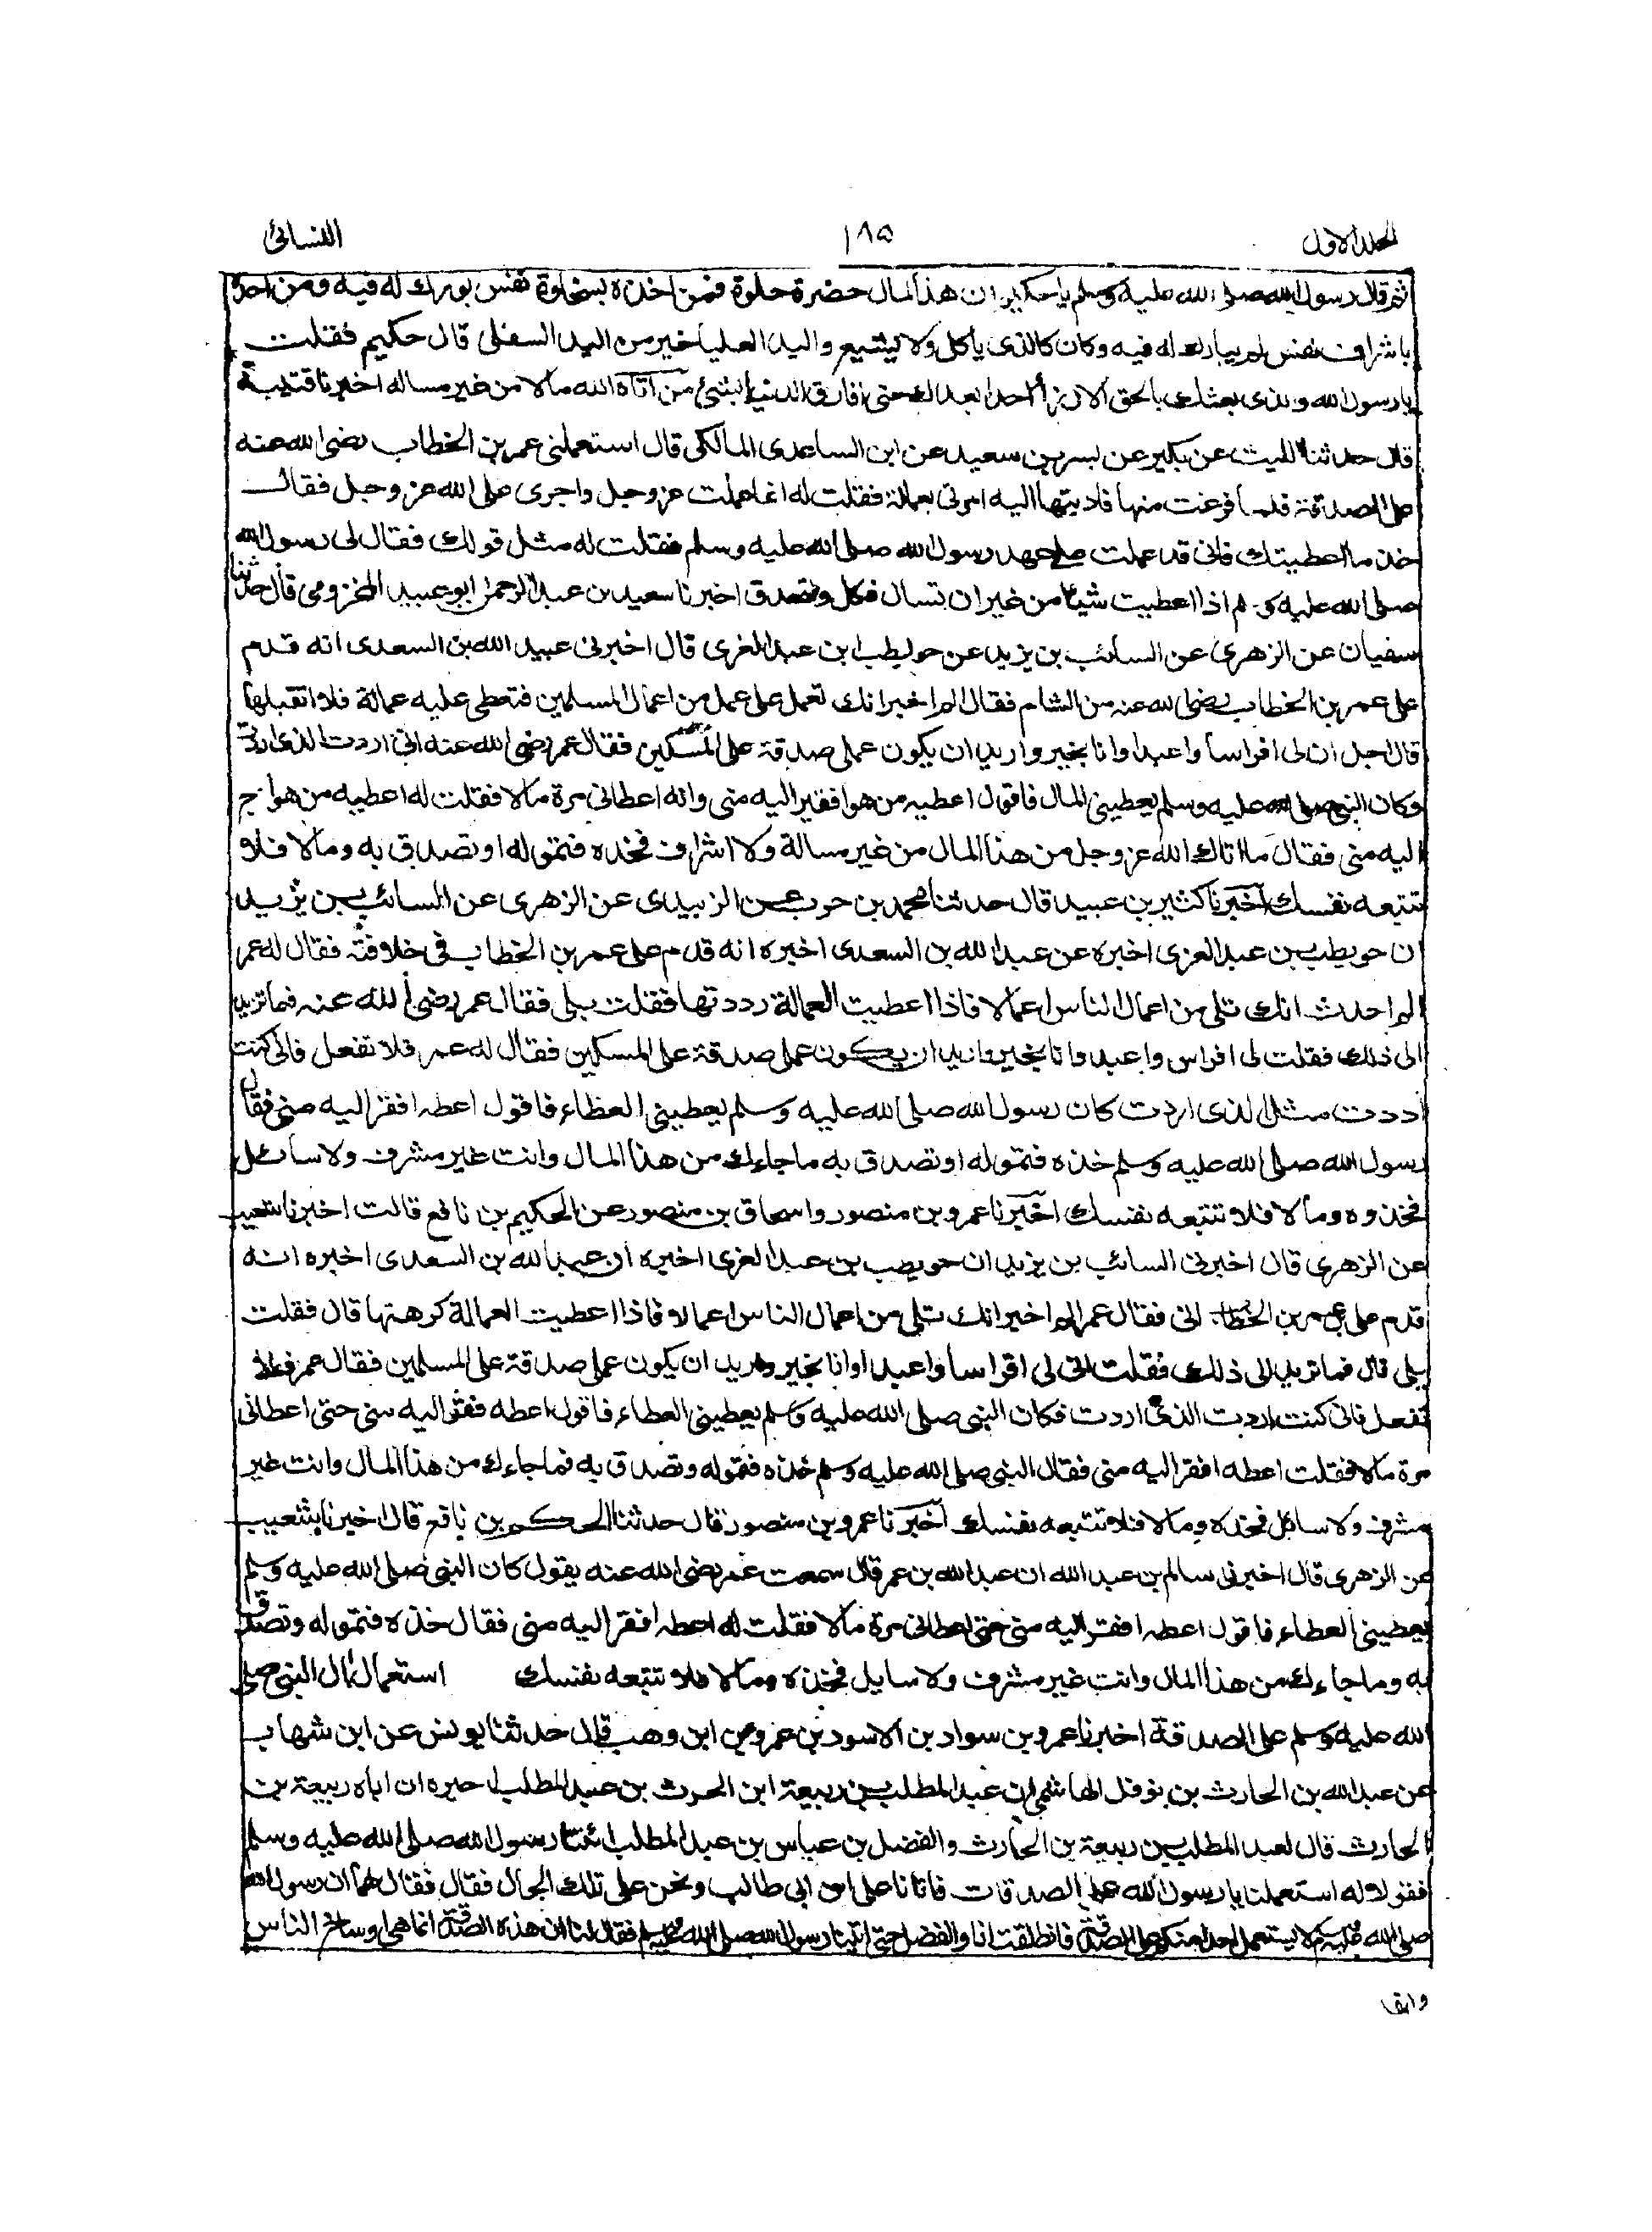 الجلد الاول ١٨٥ النسائى
ثم قال رسول الله صلى الله عليه وسلم يا حكيم ان هذا المال حضرة حلوة فمن اخذه بسخاوة نفس بورك له فيه ومن اخذه
باشراف نفس لم يبارك له فيه وكان كالذى ياكل ولا يشبع واليد العليا خير من اليد السفلى قال حكيم فقلت
يا رسول الله والذى بعثك بالحق لا ارزأ احدا بعدك حتى افارق الدنيا بشئ من آتاه الله مالا من غير مساله اخبرنا قتيبة
قال حدثنا الليث عن بكير عن بسر بن سعيد عن ابن الساعدى المالكى قال استعملنى عمر بن الخطاب رضى الله عنه
على الصدقة فلما فرغت منها فاديتها اليه امرنى بعمالة فقلت له انما عملت عز وجل واجرى على الله عز وجل فقال
خذ ما اعطيتك فانى قد عملت على عهد رسول الله صلى الله عليه وسلم فقلت له مثل قولك فقال لى رسول الله
صلى الله عليه وسلم اذا اعطيت شيئا من غير ان تسال فكل وتصدق اخبرنا سعيد بن عبد الرحمن ابو عبيد الله المخزومى قال حدثنا
سفيان عن الزهرى عن السائب بن يزيد عن حويطب ابن عبد العزى قال اخبرنى عبيد الله بن السعدى انه قدم
على عمر بن الخطاب رضى الله عنه من الشام فقال الم اخبر انك تعمل على عمل من اعمال المسلمين فتعطى عليه عمالة فلا تقبلها
قال اجل ان لى افراسا واعبدا وانا بخير واريد ان يكون عملى صدقة على المسكين فقال عمر رضى الله عنه انى اردت الذى اردت
وكان النبى صلى الله عليه وسلم يعطينى المال فاقول اعطيه من هو افقر اليه منى وانه اعطانى مرة مالا فقلت له اعطيه من هو احوج
اليه منى فقال ما اتاك الله عز وجل من هذا المال من غير مسالة ولا اشراف فخذه فتموله او تصدق به ومالا فلا
تتبعه نفسك اخبرنا كثير بن عبيد قال حدثنا محمد بن حرب عن الزبيدى عن الزهرى عن السائب بن يزيد
ان حويطب بن عبد العزى اخبره عن عبد الله بن السعدى اخبره انه قدم على عمر بن الخطاب فى خلافته فقال له عمر
الم احدث انك تلى من اعمال الناس اعمالا فاذا اعطيت العمالة رددتها فقلت بلى فقال عمر رضى الله عنه فما تريد
الى ذلك فقلت لى افراس واعبد وانا بخير واريد ان يكون عملى صدقة على المسكين فقال له عمر فلا تفعل فانى كنت
اردت مثل الذى اردت كان رسول الله صلى الله عليه وسلم يعطينى العطاء فاقول اعطه افقر اليه منى فقال
رسول الله صلى الله عليه وسلم خذه فتموله او تصدق به ما جاءك من هذا المال وانت غير مشرف ولا سائل
فخذوه ومالا فلا تتبعه نفسك اخبرنا عمرو بن منصور واسحاق بن منصور عن الحكيم بن نافع قالت اخبرنا شعيب
عن الزهرى قال اخبرنى السائب بن يزيد ان حويصب بن عبد العزى اخبره ان عبد الله بن السعدى اخبره انه
قدم على عمر بن الخطاب الى فقال عمر الم اخبر انك تلى من اعمال الناس اعمالا وفاذا اعطيت العمالة كرهتها قال فقلت
بلى قال فما تريد الى ذلك فقلت انى لى افراسا واعبدا وانا بخير واريد ان يكون عملى صدقة على المسلمين فقال عمر فلا
تفعل فانى كنت اردت الذى اردت فكان النبى صلى الله عليه وسلم يعطينى العطاء فاقول اعطه افقر اليه منى حتى اعطانى
مرة مالا فقلت اعطه افقر اليه منى فقال النبى صلى الله عليه وسلم خذه فتموله وتصدق به فما جاءك من هذا المال وانت غير
مشرف ولا سائل فخذه ومالا فلا تتبعه نفسك اخبرنا عمرو بن منصور قال حدثنا الحكم بن نافع قال اخبرنا شعيب
عن الزهرى قال اخبرنى سالم بن عبد الله ان عبد الله بن عمر قال سمعت عمر رضى الله عنه يقول كان النبى صلى الله عليه وسلم
يعطينى العطاء فاقول اعطه افقر اليه منى حتى اعطانى مرة مالا فقلت له اعطه افقر اليه منى فقال خذه فتموله وتصدق
به وما جاءك من هذا المال وانت غير مشرف ولا سايل فخذه ومالا فلا تتبعه نفسك استعمال ال النبى صلى
الله عليه وسلم على الصدقة اخبرنا عمرو بن سواد بن الاسود بن عمرو عن ابن وهب قال حدثنا يونس عن ابن شهاب
عن عبد الله بن الحارث بن نوفل الهاشمى ان عبد المطلب بن ربيعة ابن الحرث بن عبد المطلب اخبره ان اباه ربيعة بن
الحارث قال لعبد المطلب بن ربيعة بن الحارث والفضل بن عباس بن عبد المطلب ائتنا رسول الله صلى الله عليه وسلم
فقولا له استعملنا يا رسول الله على الصدقات فاتانا على ابن ابى طالب ونحن على تلك الحال فقال فقال لهما ان رسول الله
صلى الله عليه وسلم لا يستعمل احدا منكم على الصدقة فانطلقت انا والفضل حتى اتينا رسول الله صلى الله عليه وسلم فقال لنا ان هذه الصدقة انما هى اوساخ الناس
وانها